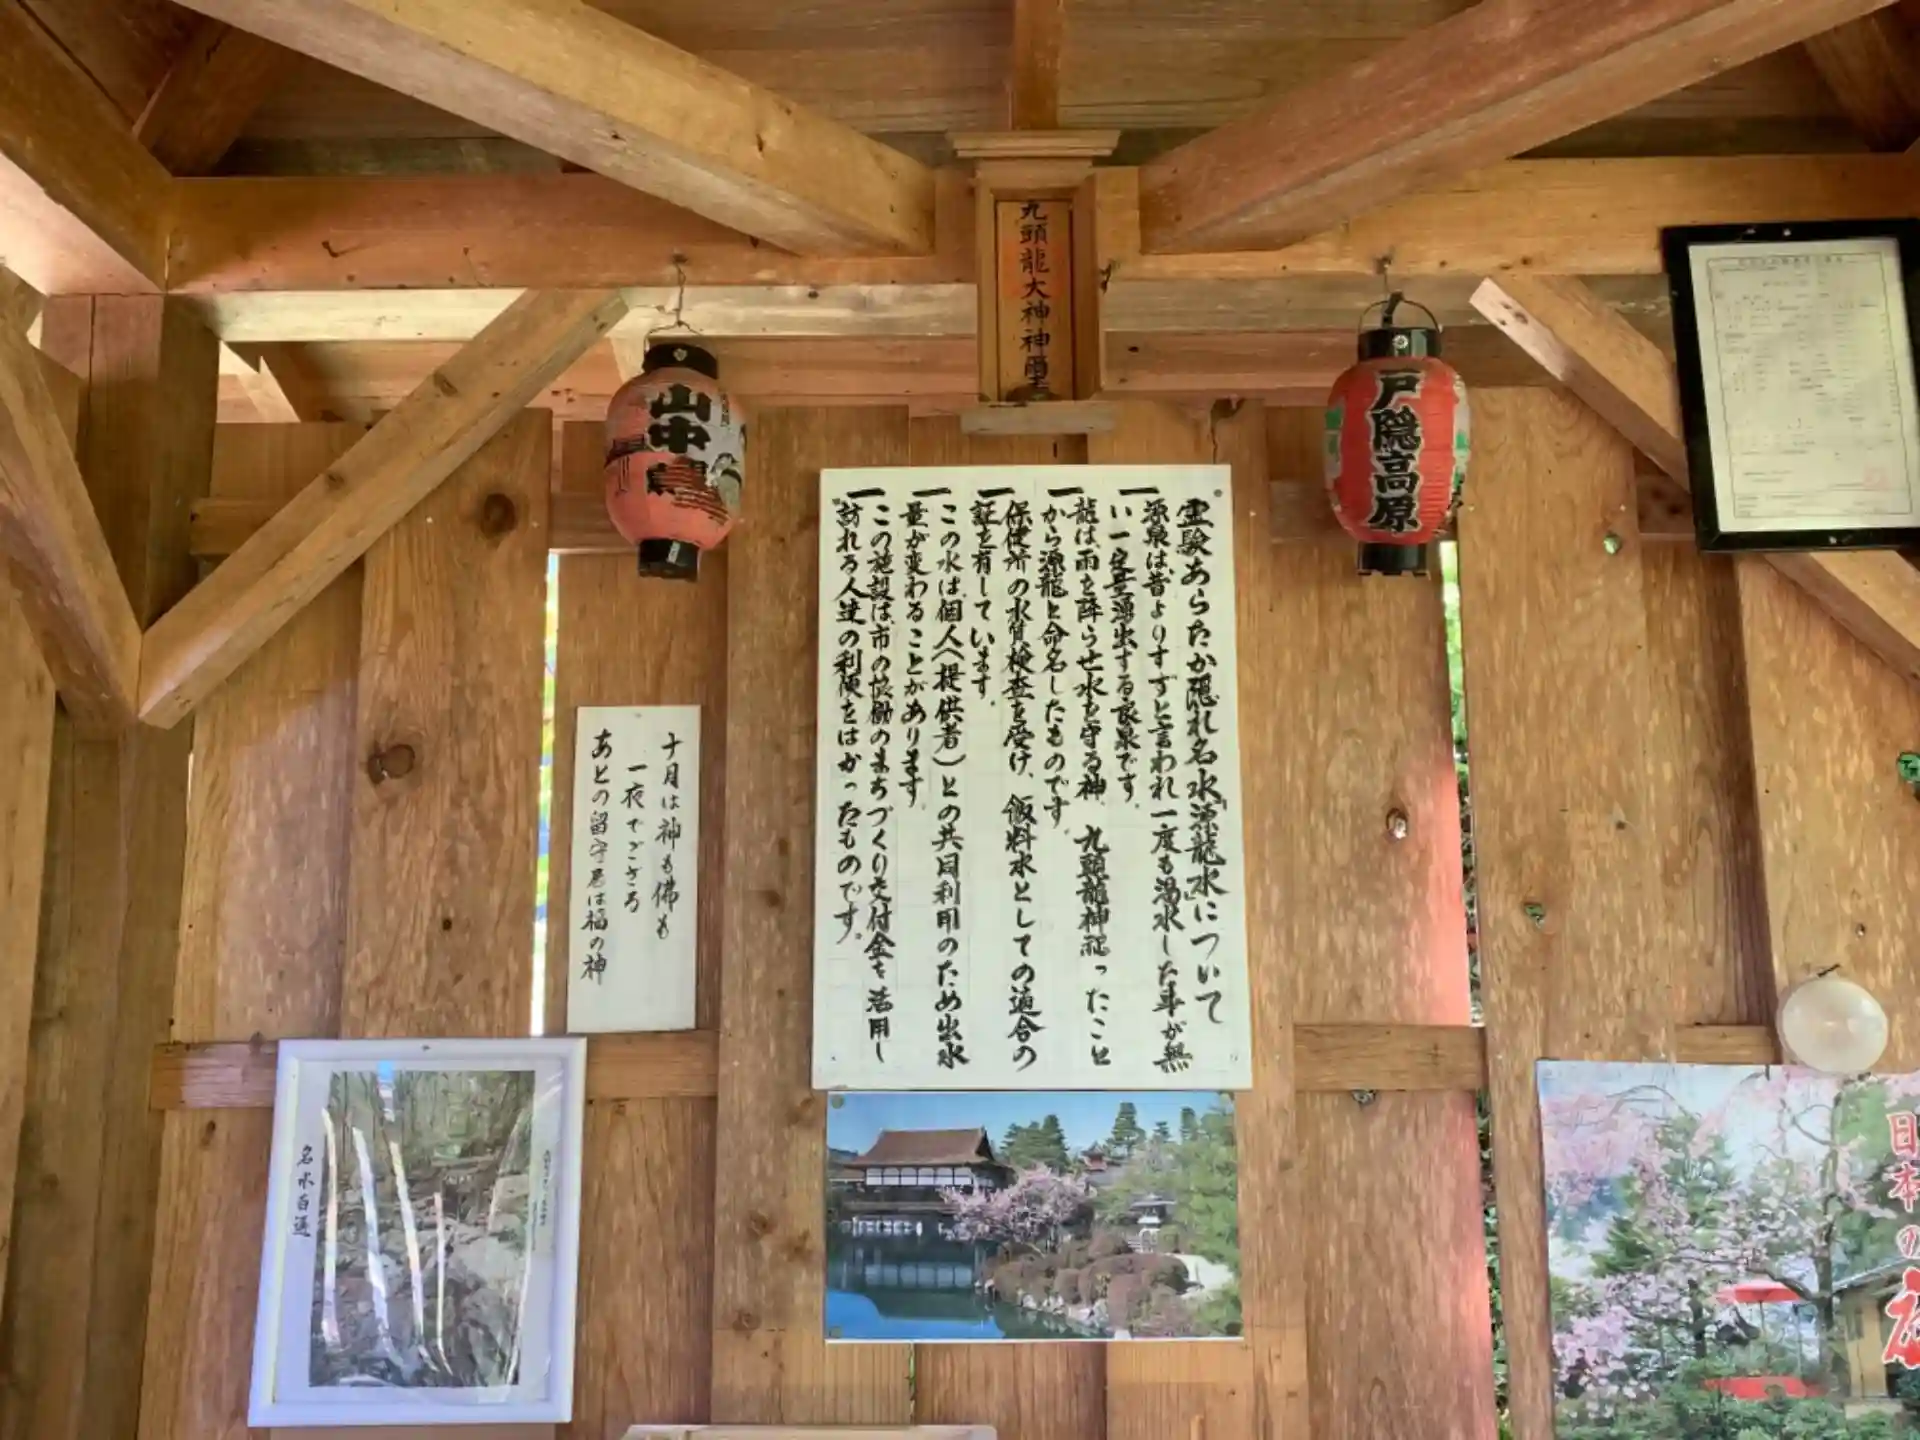 九頭龍大神神璽
山中
戸隠高原
霊験あらたか隠れ名水「源龍水」について
一 源泉は、昔よりすずと言われ一度も渇水した事が無
い一定量湧出する良泉です。
一 龍は、雨を降らせ水を守る神、九頭龍神祀ったこと
から源龍と命名したものです。
一 保健所の水質検査を受け、飯料水としての適合の
証を有しています。
一 この水は、個人(提供者)との共同利用のため出水
量が変わることがあります。
一 この施設は、市の協働のまちづくり交付金を活用し
訪れる人達の利便をはかったものです。
十月は神も佛も
一夜でござる
あとの留守居は福の神
名水百選
日本の